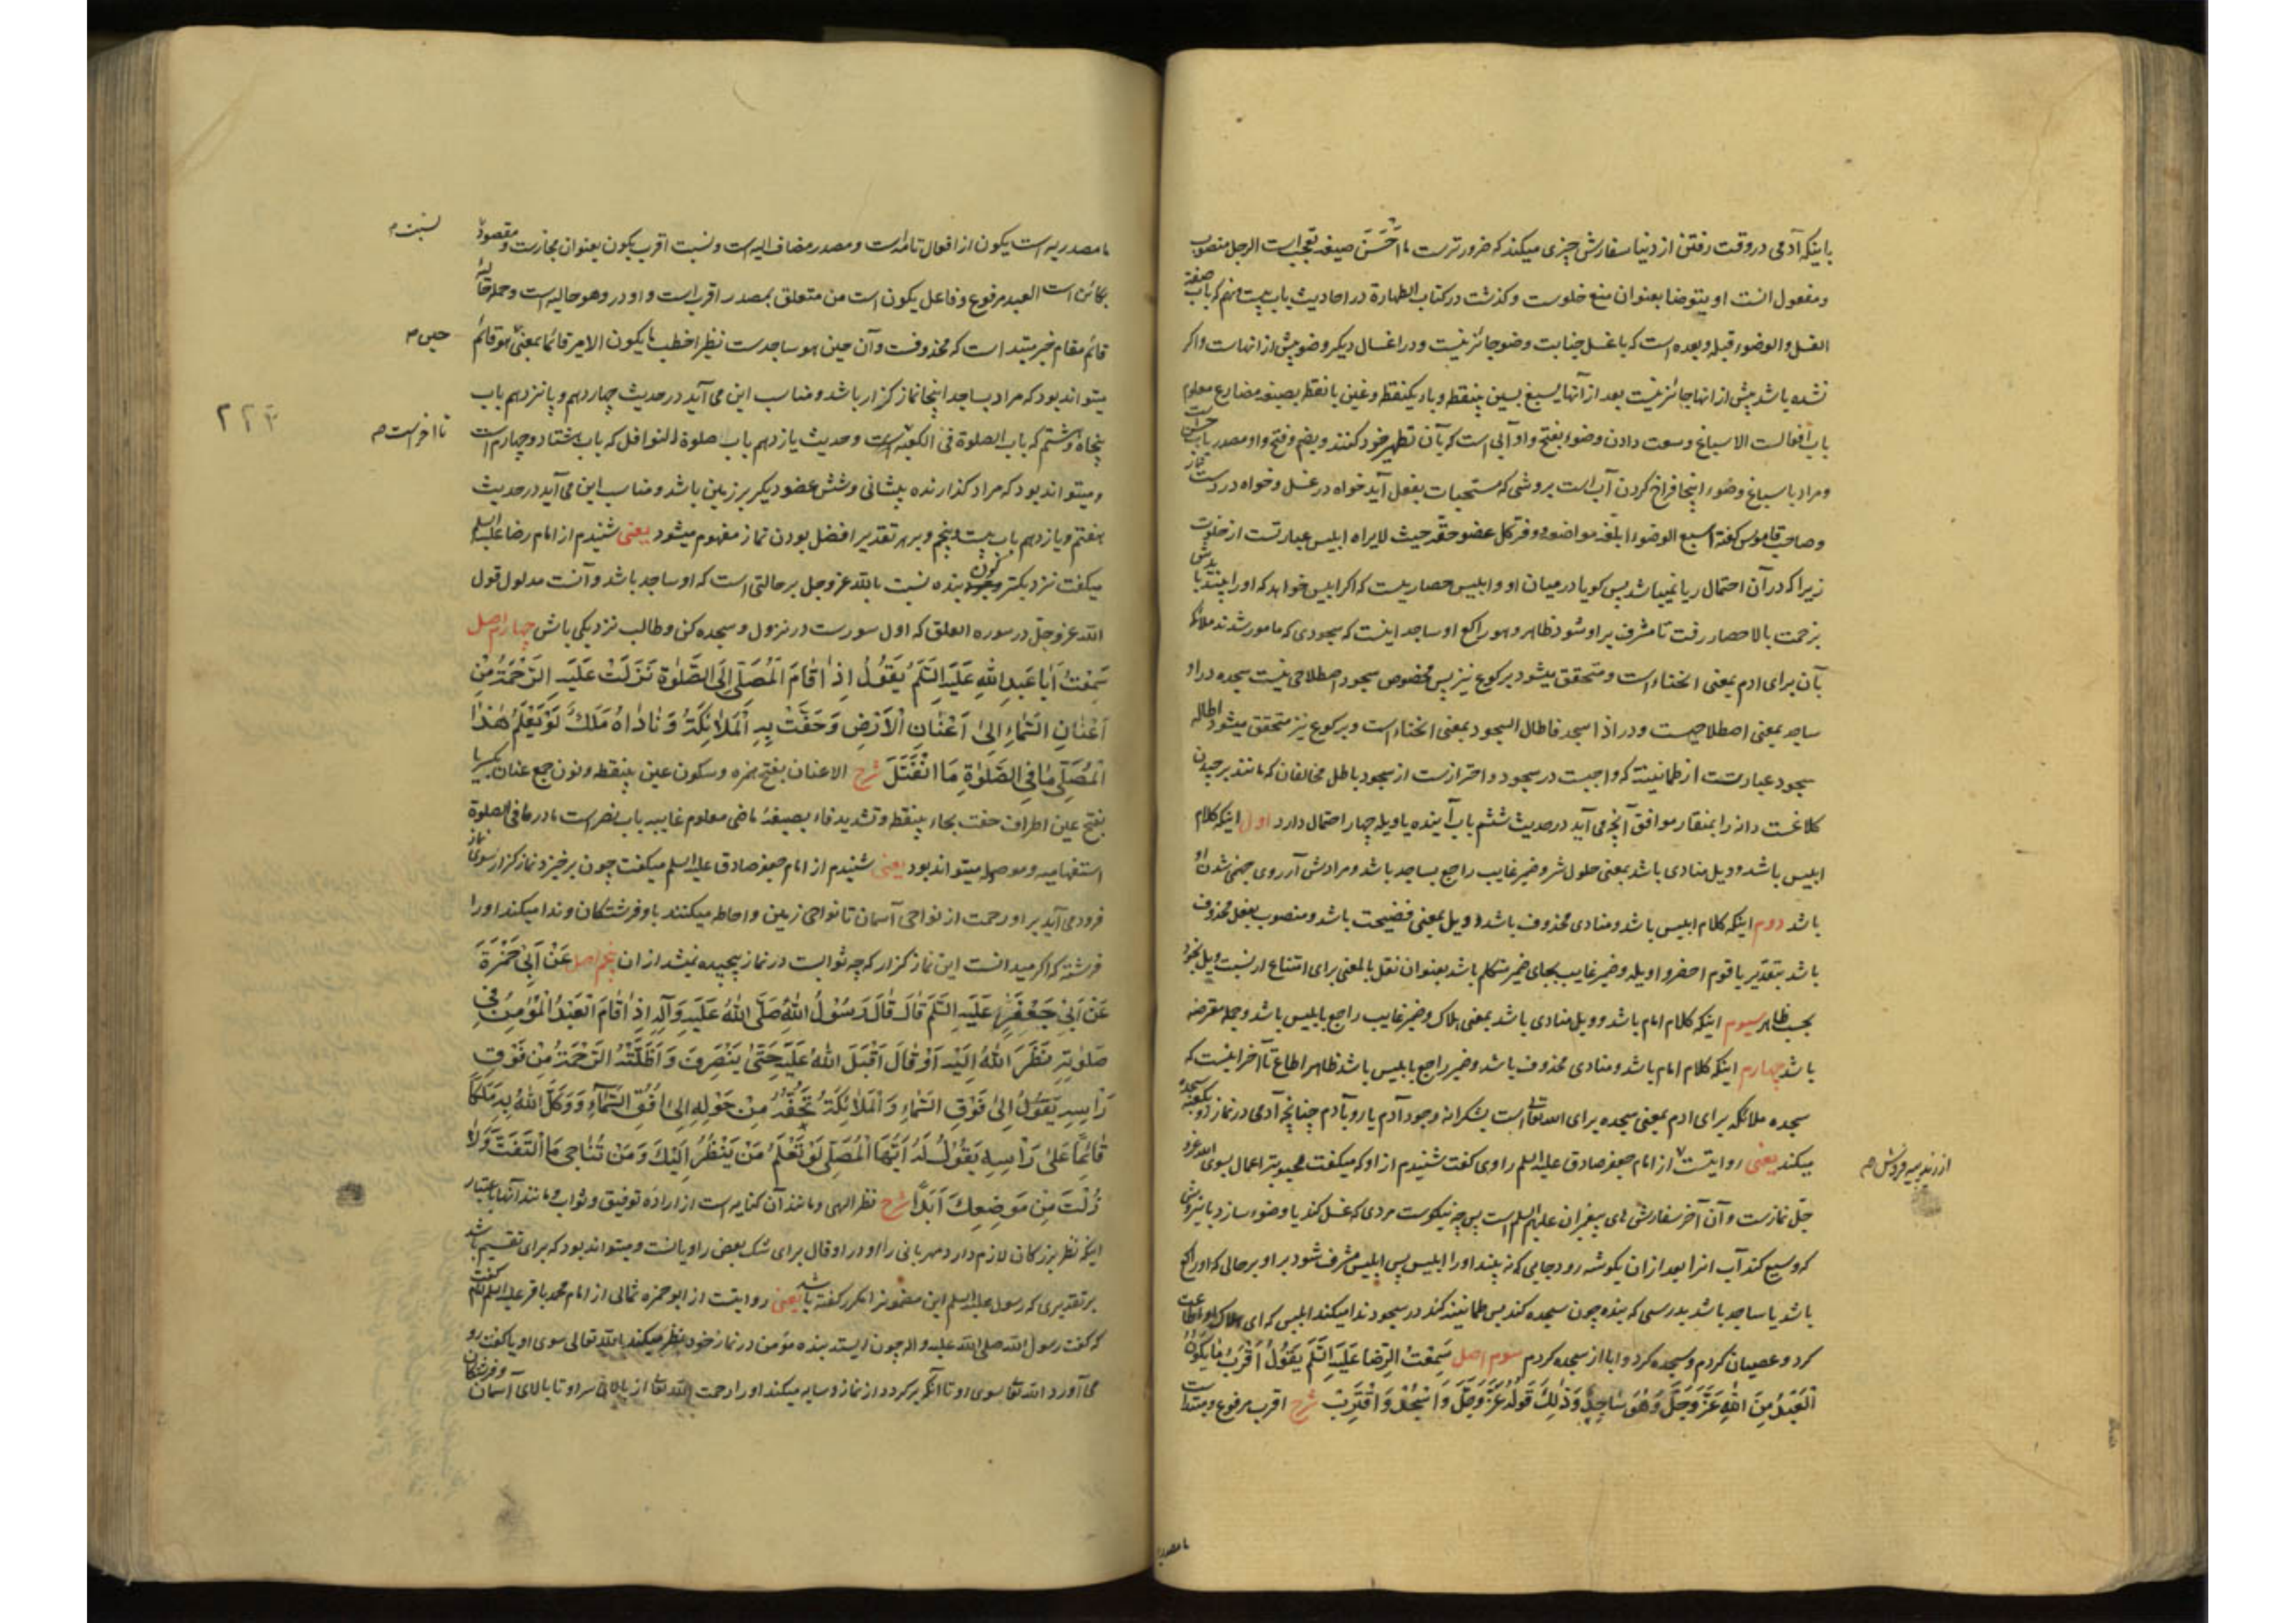 بااینکه آدمی در وقت رفتن از دنیا سفارش چیزی میکند که ضرورترست ما اَحْسَنَ صیغه تعجب است الرجل منصوب
و مفعول انست او یتوضا بعنوان منع خلوست و گذشت در کتاب الطهارة در احادیث باب بیست و نهم که باب صفة
الغسل والوضوء قبله و بعده است که باغسل جنابت وضو جائز نیست و در اغسال دیگر وضو پیش از انهاست و اگر
نشده باشد پیش از انها جائز نیست بعد از آنها یسبغ بسین بینقطه و باء یکنقطه و غین بانقطه بصیغه مضارع معلوم
باب افعالست الاسباغ وسعت دادن وضوء بفتح واو آبی است که بآن تطهیر خود کنند و بضم و فتح واو مصدر باب حسن است
و مراد باسباغ وضوء اینجا فراخ کردن آب است بروشی که مستحبات بفعل آید خواه در غسل و خواه در
و صاحب قاموس گفته اسبغ الوضوء ابلغه مواضعه و وفی کل عضو حقه حیث لایراه ابلیس عبارتست از خلوت
زیرا که در آن احتمال ریا نمیباشد پس گویا در میان او و ابلیس حصاریست که اگر ابلیس خواهد که او را بیند باید
بزحمت بالا حصار رفت تا مشرف بر او شود ظاهر و هو راکع او ساجد اینست که سجودی که مامور شدند ملائکه
بآن برای ادم بمعنی انحناء است و متحقق میشود برکوع نیز پس مخصوص سجود اصطلاحی نیست سجده در او
ساجد بمعنی اصطلاحیست و در اذا سجد فاطال السجود بمعنی انحناء است و برکوع نیز متحقق میشود اطاله
سجود عبارتست از طمانینه که واجبست در سجود و احترازست از سجود باطل مخالفان که مانند برچیدن
کلاغست دانه را بمنقار موافق آنچه می آید در حدیث ششم باب آینده یاویله چهار احتمال دارد اول اینکه کلام
ابلیس باشد و ویل منادی باشد بمعنی حلول شر و ضمیر غایب راجع بساجد باشد و مرادش آرزوی جهنمی شدن او
باشد دوم اینکه کلام ابلیس باشد و منادی محذوف باشد و ویل بمعنی فضیحت باشد و منصوب بفعل محذوف
باشد بتقدیر یا قوم احضروا ویله و ضمیر غایب بجای ضمیر متکلم باشد بعنوان نقل بالمعنی برای امتناع از نسبت ویل بخود
بحسب ظاهر سیوم اینکه کلام امام باشد و ویل منادی باشد بمعنی هلاک و ضمیر غایب راجع بابلیس باشد و جمله معترضه
باشد چهارم اینکه کلام امام باشد و منادی محذوف باشد و ضمیر راجع بابلیس باشد ظاهر اطاع تا آخر اینست که
سجده ملائکه برای ادم بمعنی سجده برای الله تعالی است بشکرانه وجود آدم یا رو بآدم چنانچه آدمی در نماز رو بکعبه سجده
میکند یعنی روایتست از امام جعفر صادق علیه السلم راوی گفت شنیدم از او که میگفت محبوبتر اعمال بسوی الله عز و
جل نمازست و آن آخر سفارش های پیغمبران علیهم السلم است پس چه نیکوست مردی که غسل کند یا وضوء سازد
که وسیع کند آب انرا بعد از ان بگوشه رود جایی که نه بیند او را ابلیس پس ابلیس مشرف شود بر او بر حالی که او راکع
باشد یا ساجد باشد بدرستی که بنده چون سجده کند پس طمانینه کند در سجود ندا میکند ابلیس که ای هلاک او اطاعت
کرد و عصیان کردم و سجده کرد و ابا از سجده کردم سوم اصل سَمِعْتُ الرِّضَا عَلَيْهِ السَّلَمُ يَقُولُ اَقْرَبُ مَا يَكُونُ
الْعَبْدُ مِنَ اللهِ عَزَّ وَجَلَّ وَهُوَ سَاجِدٌ وَذٰلِكَ قَولُهُ عَزَّ وَجَلَّ وَاسْجُدْ وَاقْتَرِبْ شرح اقرب مرفوع و مبتدا است
مامصدریه
مامصدریه است یکون از افعال تامه است و مصدر مضاف الیه است و نسبت اقرب بکون بعنوان مجازست و مقصود
بکائن است العبد مرفوع و فاعل یکون است من متعلق بمصدر اقرب است واو در وهو حالیه است و جمله حالیه
نسبت ص
قائم مقام خبر مبتدا است که محذوفست و آن حین هو ساجدست نظیر اخطب ما یکون الامیر قائما بمعنی هو قائم
حین ص
میتواند بود که مراد بساجد اینجا نماز گزار باشد و مناسب این می آید در حدیث چهاردهم و پانزدهم باب
۲۲۳
پنجاه و هشتم که باب الصلوة فی الکعبه است و حدیث یازدهم باب صلوة النوافل که باب هشتاد و چهارم است
تا آخر است ص
و میتواند بود که مراد گذارنده پیشانی و شش عضو دیگر بر زمین باشد و مناسب این می آید در حدیث
هفتم و یازدهم باب بیست و پنجم و بر هر تقدیر افضل بودن نماز مفهوم میشود یعنی شنیدم از امام رضا علیه السلم
میگفت نزدیکتر کون بنده نسبت بالله عز و جل بر حالتی است که او ساجد باشد و آنست مدلول قول
الله عز و جل در سوره العلق که اول سورست در نزول و سجده کن و طالب نزدیکی باش چهارم اصل
سَمِعْتُ اَبَا عَبدِ اللهِ عَلَيْهِ السَّلَمُ يَقُولُ اِذَا قَامَ الْمُصَلِّي اِلَى الصَّلٰوةِ نَزَلَتْ عَلَيْهِ الرَّحْمَةُ مِنْ
اَعْنَانِ السَّمَاءِ اِلىٰ اَعْنَانِ الْاَرْضِ وَحَفَّتْ بِهِ الْمَلَائِكَةُ وَنَادَاهُ مَلَكٌ لَوْ يَعْلَمُ هٰذَا
الْمُصَلِّي مَا فِي الصَّلٰوةِ مَا انْفَتَلَ شرح الاعنان بفتح همزه و سکون عین بینقطه و نون جمع عنان بکسر یا
بفتح عین اطراف حفت بحاء بینقطه و تشدید فاء بصیغهٔ ماضی معلوم غایبه باب نصر است ما در ما فی الصلوة
استفهامیه و موصوله میتواند بود یعنی شنیدم از امام جعفر صادق علیه السلم میگفت چون برخیزد نماز گزار سوی نماز
فرود می آید بر او رحمت از نواحی آسمان تا نواحی زمین و احاطه میکنند باو فرشتگان و ندا میکند او را
فرشته که اگر میدانست این نماز گزار که چه ثوابست در نماز پیچیده نمیشد از ان پنجم اصل عَنْ اَبِي حَمْزَةَ
عَنْ اَبِي جَعْفَرٍ عَلَيْهِ السَّلَمُ قَالَ قَالَ رَسُوْلُ اللهِ صَلَّى اللهُ عَلَيْهِ وَآلِهِ اِذَا قَامَ الْعَبْدُ الْمُؤْمِنُ فِي
صَلٰوتِهِ نَظَرَ اللهُ اِلَيْهِ اَوْ قَالَ اَقْبَلَ اللهُ عَلَيْهِ حَتّىٰ يَنْصَرِفَ وَاَظَلَّتْهُ الرَّحْمَةُ مِنْ فَوْقِ
رَاْسِهِ اِلىٰ فَوْقِ السَّمَاءِ وَالْمَلَائِكَةُ تَحُفُّهُ مِنْ حَوْلِهِ اِلىٰ اُفُقِ السَّمَاءِ وَوَكَّلَ اللهُ بِهِ مَلَكًا
قَائِمًا عَلىٰ رَاْسِهِ يَقُولُ لَهُ اَيُّهَا الْمُصَلِّي لَوْ تَعْلَمُ مَنْ يَنْظُرُ اِلَيْكَ وَمَنْ تُنَاجِي مَا الْتَفَتَّ وَلَا
زُلْتَ مِنْ مَوضِعِكَ اَبَدًا شرح نظر الهی و مانند آن کنایه است از ارادهٔ توفیق و ثواب و مانند آنها باعتبار
اینکه نظر بزرگان لازم دارد مهربانی را او در او قال برای شک بعض راویانست و میتواند بود که برای تقسیم باشد
بر تقدیری که رسول علیه السلم این مضمون را مکرر گفته باشد یعنی روایتست از ابوحمزه ثمالی از امام محمد باقر علیه السلم گفت
که گفت رسول الله صلی الله علیه و اله چون ایستد بنده مؤمن در نماز خود نظر میکند الله تعالی سوی او یا گفت رو
می آورد الله تعالی بسوی او تا آنکه برگردد از نماز و سایه میکند او را رحمت الله تعالی از بالای سر او تا بالای آسمان و فرشتگان